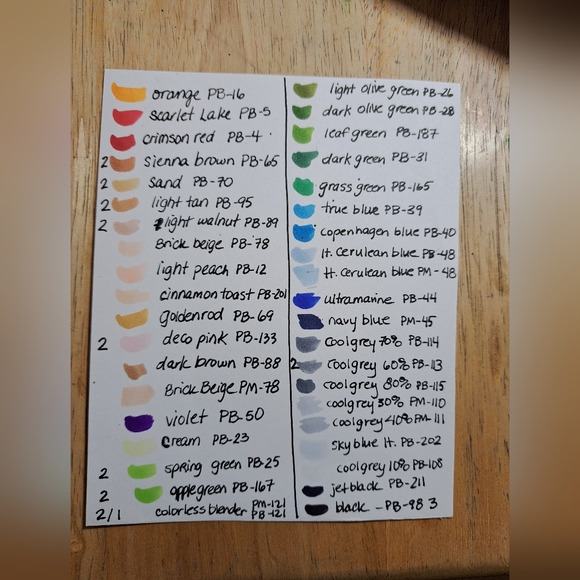 orange PB-16
scarlet Lake PB-5
crimson red PB-4
2 sienna brown PB-65
2 sand PB-70
2 light tan PB-95
2 light walnut PB-89
Brick beige PB-78
light peach PB-12
cinnamon toast PB-201
goldenrod PB-69
2 deco pink PB-133
dark brown PB-88
Brick Beige PM-78
violet PB-50
Cream PB-23
2 spring green PB-25
2 apple green PB-167
2/1 colorless blender PM-121
PB-121
light olive green PB-26
dark olive green PB-28
leaf green PB-187
dark green PB-31
grass green PB-165
true blue PB-39
copenhagen blue PB-40
lt. cerulean blue PB-48
lt. cerulean blue PM-48
ultramarine PB-44
navy blue PM-45
cool grey 70% PB-114
2 cool grey 60% PB-113
cool grey 80% PB-115
cool grey 30% PM-110
cool grey 40% PM-111
sky blue lt. PB-202
cool grey 10% PB-108
jet black PB-211
black - PB-98 3